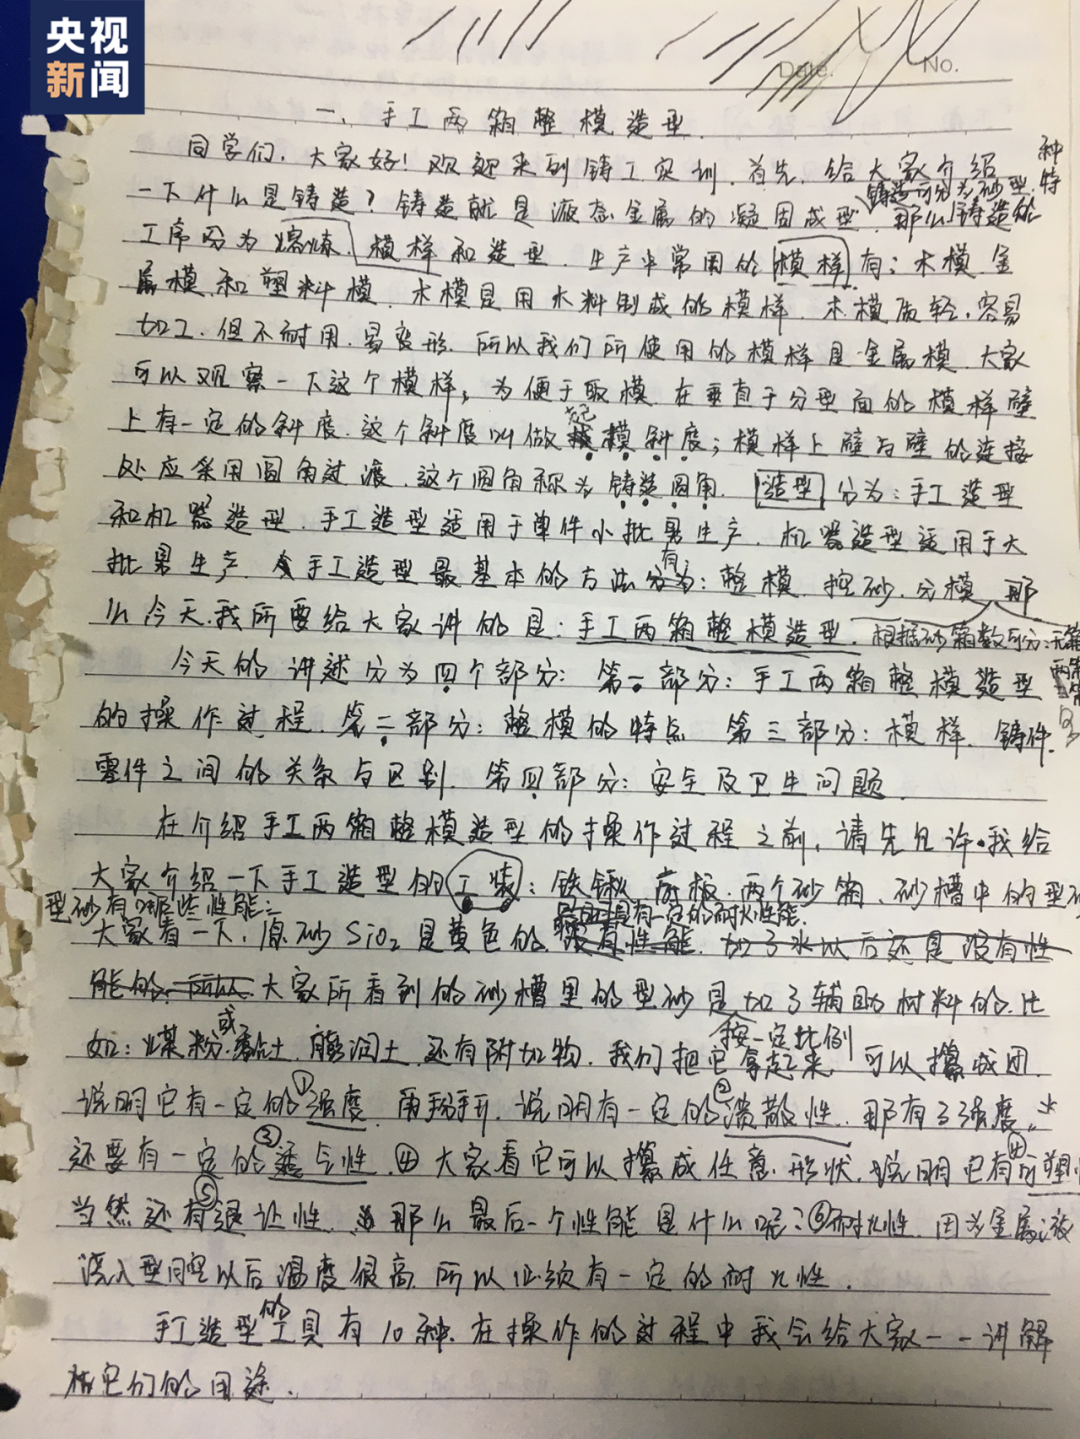 央视
新闻
Date.
No.
一、手工两箱整模造型.
同学们,大家好!欢迎来到铸工实训.首先,给大家介绍
种
特
铸造可分为砂型.
一下什么是铸造?铸造就是液态金属的凝固成型.那么铸造的
工序因为熔炼、模样和造型.生产中常用的模样有:木模.金
属模和塑料模.木模是用木料制成的模样.木模质轻.容易
加工.但不耐用.易变形.所以我们所使用的模样是金属模.大家
可以观察一下这个模样,为便于取模.在垂直于分型面的模样壁
上有一定的斜度.这个斜度叫做起模斜度;模样上壁与壁的连接
处应采用圆角过渡.这个圆角称为铸造圆角.造型分为:手工造型
和机器造型.手工造型适用于单件小批量生产.机器造型适用于大
批量生产.手工造型最基本的方法有:整模.挖砂.分模.那
么今天.我所要给大家讲的是:手工两箱整模造型.根据砂箱数可分:无箱
两箱
今天的讲述分为四个部分:第一部分:手工两箱整模造型
的操作过程.第二部分:整模的特点.第三部分:模样.铸件.
零件之间的关系与区别.第四部分:安全及卫生问题.
在介绍手工两箱整模造型的操作过程之前,请先允许我给
大家介绍一下手工造型的工装:铁锹.底板.两个砂箱.砂槽中的型砂
型砂有哪些性能:
具有一定的耐火性能.
大家看一下,原砂SiO₂是黄色的没有性能.加了水以后还是没有性
能的.所以大家所看到的砂槽里的型砂是加了辅助材料的.比
如:煤粉.或黏土.膨润土.还有附加物.按一定比例
我们把它拿起来.可以攥成团.
说明它有一定的①强度.再掰开.说明有一定的②溃散性.那有了强度.
还要有一定的③透气性.④大家看它可以攥成任意形状.说明它有④可塑性
当然还有⑤退让性.那么最后一个性能是什么呢?⑥耐火性.因为金属液
浇入型腔以后温度很高.所以必须有一定的耐火性.
手工造型的工具有10种.在操作的过程中我会给大家一一讲解
它们的用途.